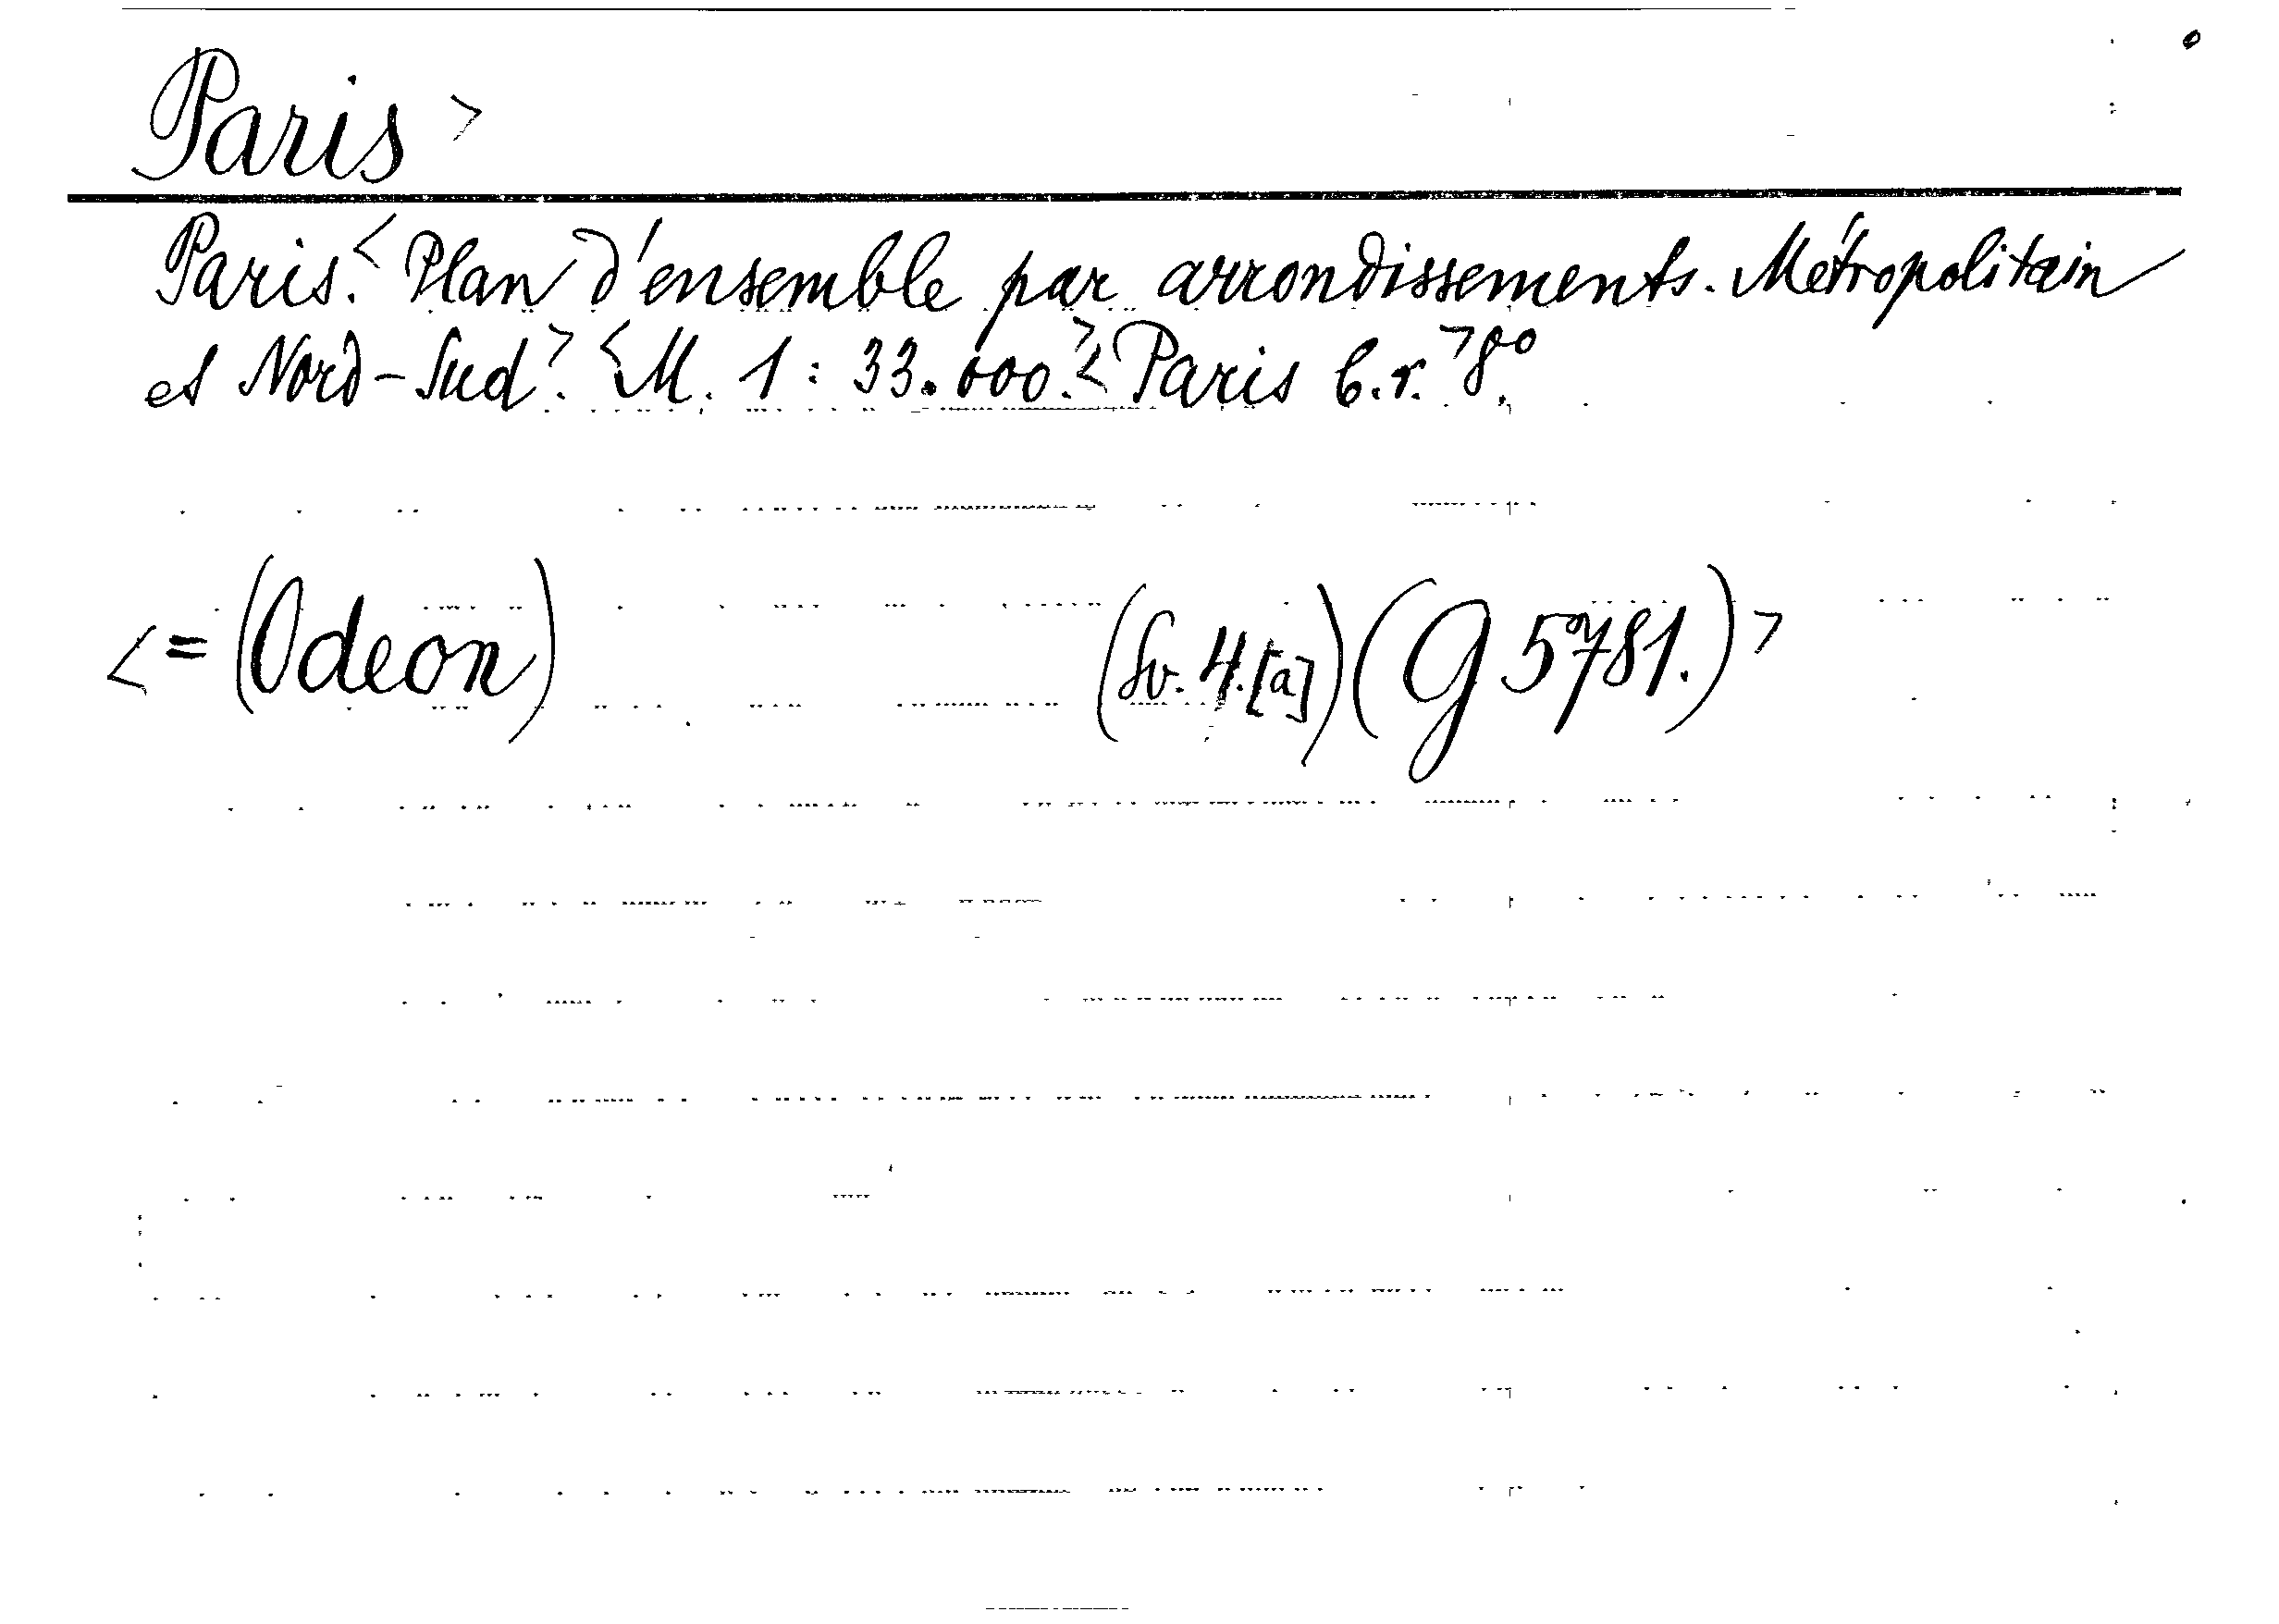 Paris >
Paris.< Plan d'ensemble par arrondissements. Métropolitain
et Nord-Sud.> <M. 1 : 33.000.> <Paris c.r.> 8°.
<= (Odeon) (Sv. 4.[a]) (G 5781.) >